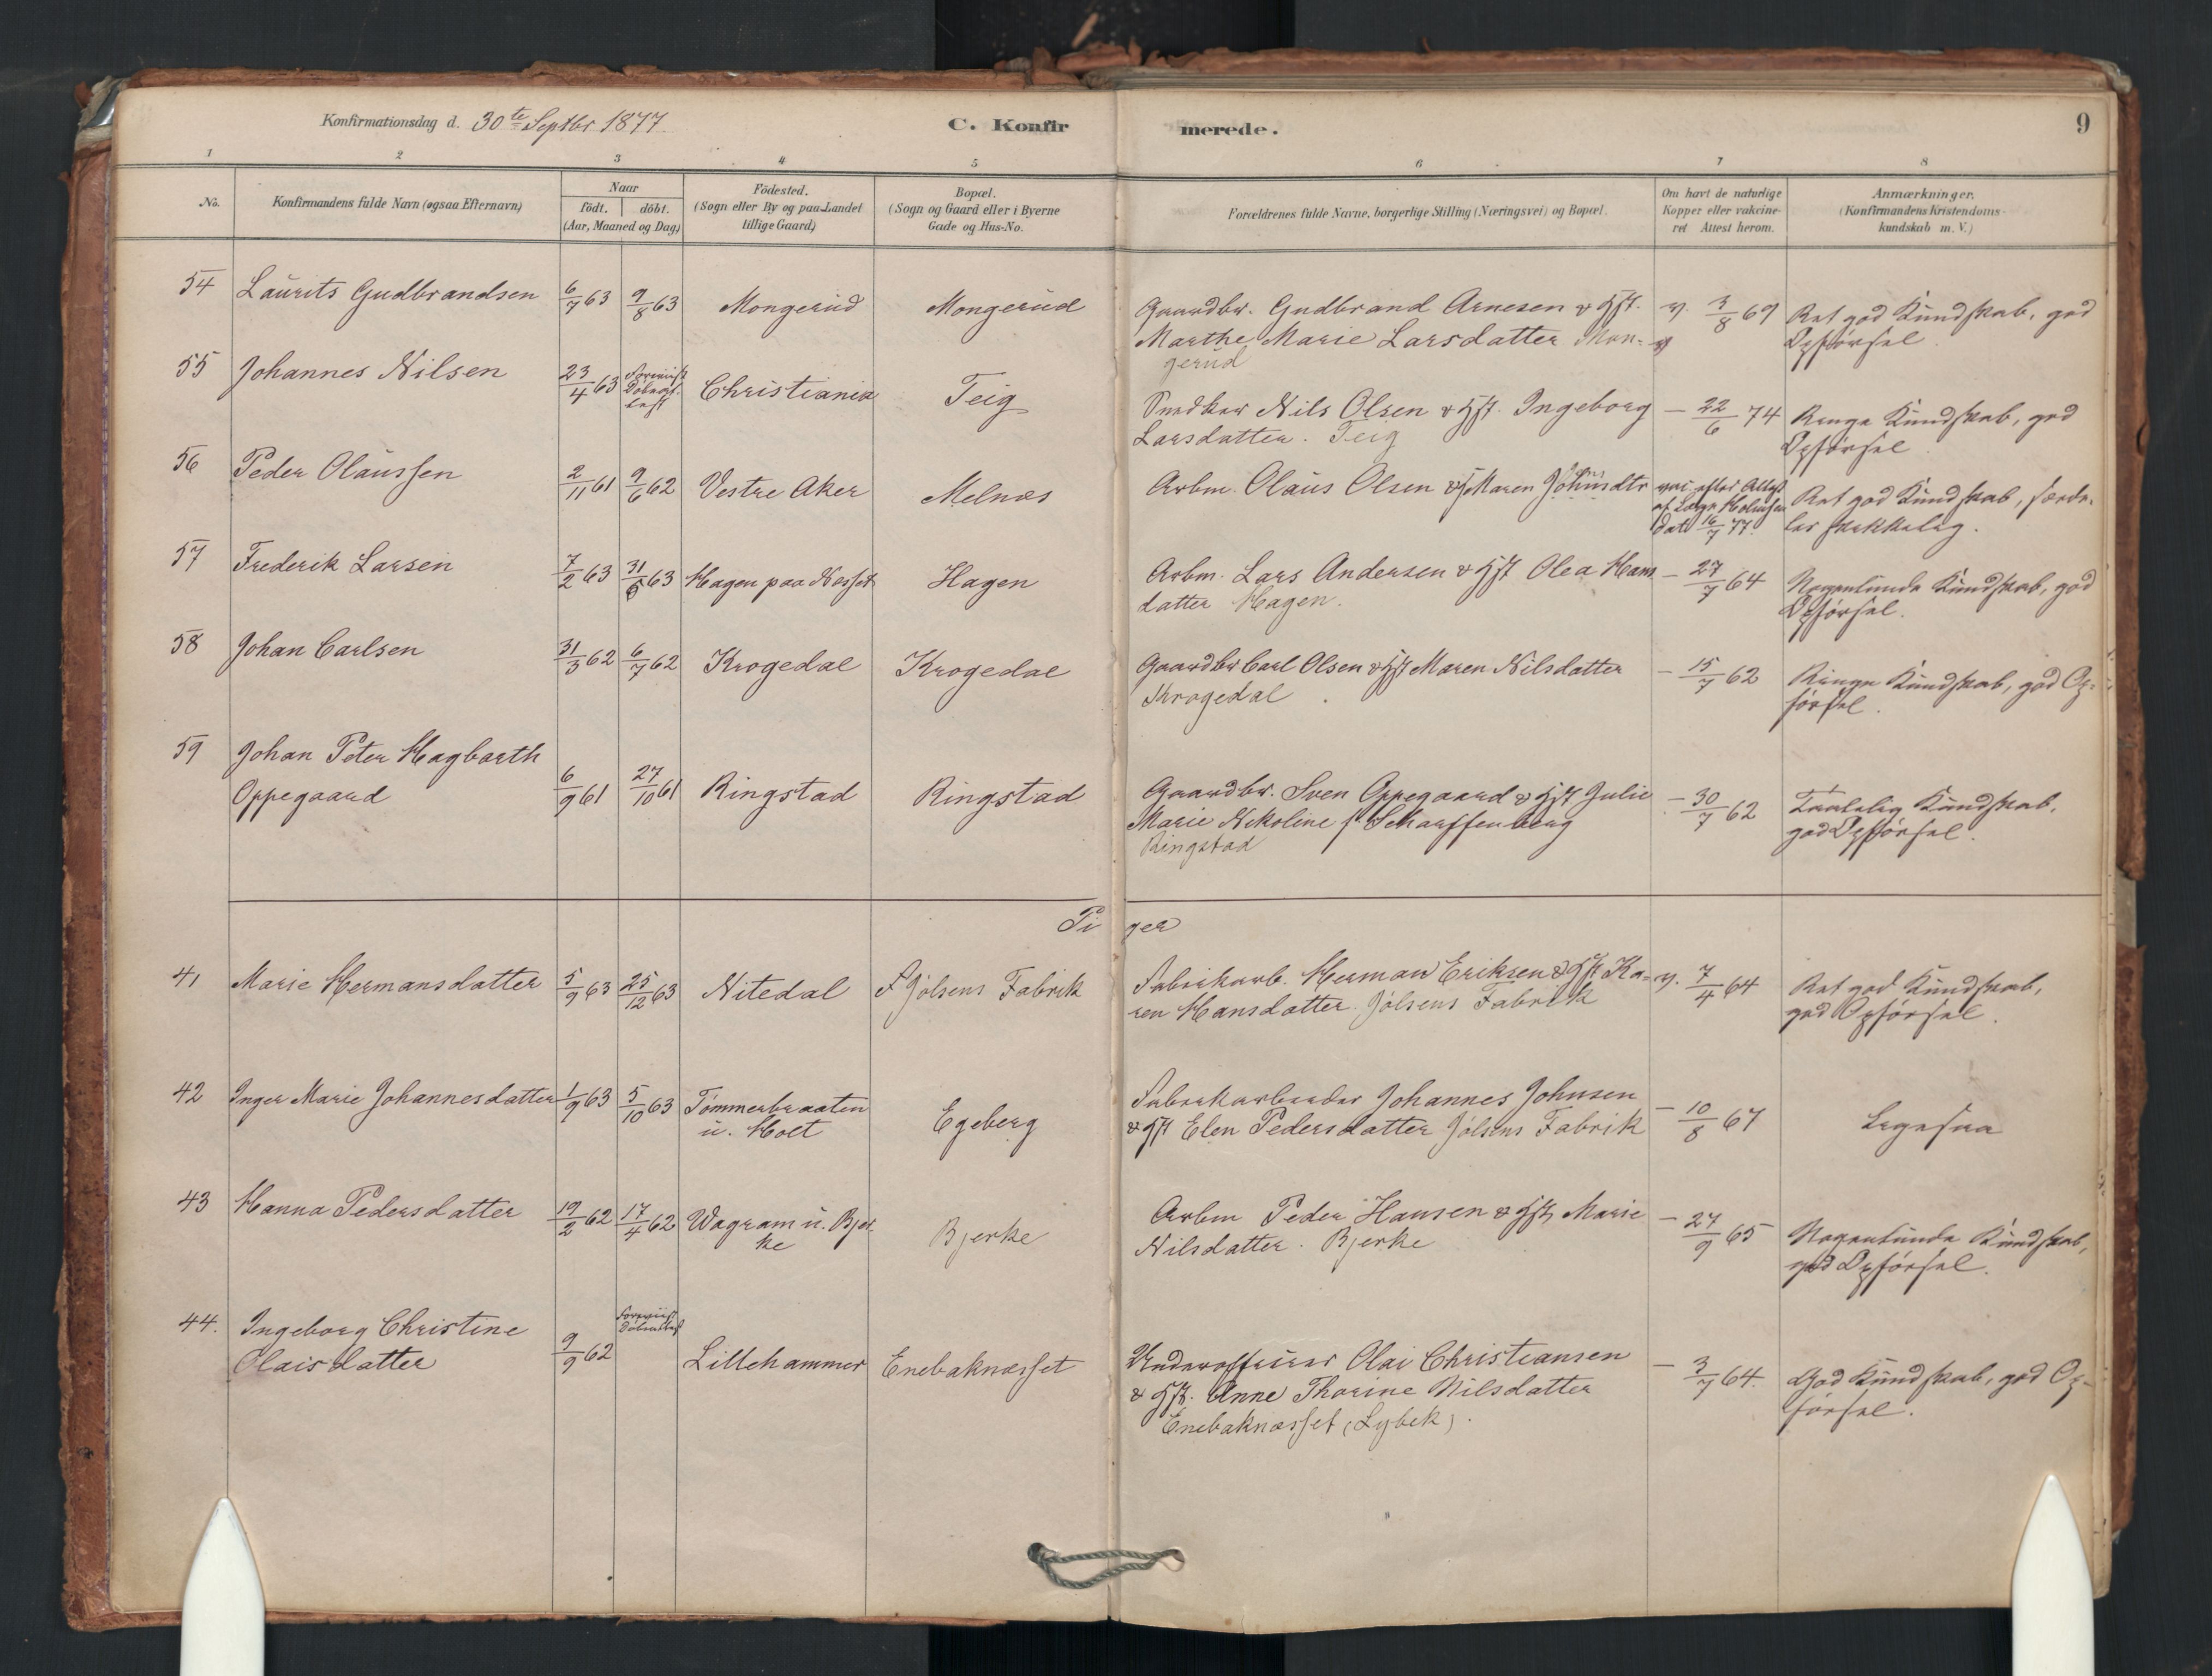 Konfirmationsdag d. 30te Septbr 1877.
C. Konfirmerede.
9
1 2 3 4 5 6 7 8
No.
Konfirmandens fulde Navn (ogsaa Efternavn)
Naar
födt. döbt.
(Aar, Maaned og Dag)
Födested.
(Sogn eller By og paa Landet
tillige Gaard)
Bopæl.
(Sogn og Gaard eller i Byerne
Gade og Hus-No.
Forældrenes fulde Navne, borgerlige Stilling (Næringsvei) og Bopæl.
Om havt de naturlige
Kopper eller vakcine-
ret Attest herom.
Anmærkninger.
(Konfirmandens Kristendoms-
kundskab m. V.)
54 Laurits Gudbrandsen 6/7 63 9/8 63 Mongerud Mongerud
Gaardbr. Gudbrand Arnesen & Hst.
Marthe Marie Larsdatter Mon-
gerud
v. 3/8 69
Ret god Kundskab, god
Opförsel.
55 Johannes Nilsen 23/4 63 Forevist Döbeat-
test Christiania Teig
Snedker Nils Olsen & Hst. Ingeborg
Larsdatter. Teig
— 22/6 74
Ringe Kundskab, god
Opförsel
56 Peder Olaussen 2/11 61 9/6 62 Vestre Aker Melnæs
Arbm. Olaus Olsen & Maren
vac. efter Attest
af Læge
dat. 16/7 77.
Ret god Kundskab, særde-
les skikkelig.
57 Frederik Larsen 7/2 63 31/5 63 Hagen paa Nesset Hagen
Arbm. Lars Andersen & Hst Olea Hans
datter Hagen.
— 27/7 64
Nogenlunde Kundskab, god
Opförsel.
58 Johan Carlsen 31/3 62 6/7 62 Krogedal Krogedal
Gaardbr Carl Olsen & Hst Maren Nilsdatter
Krogedal.
— 15/7 62
Ringe Kundskab, god Op-
försel.
59 Johan Peter Hagbarth
Oppegaard 6/9 61 27/10 61 Ringstad Ringstad
Gaardbr. Sven Oppegaard & Hst Julie
Marie Nikoline f. Scharffenberg
Ringstad
— 30/7 62
Taalelig Kundskab,
god Opförsel.
Piger
41 Marie Hermansdatter 5/9 63 25/12 63 Nitedal Jölsens Fabrik
Fabrikarb. Herman Eriksen & Hst Ka-
ren Hansdatter Jölsens Fabrik
v. 7/4 64
Ret god Kundskab,
god Opförsel.
42 Inger Marie Johannesdatter 1/9 63 5/10 63 Tömmerbraaten
u. Holt Egeberg
Fabrikarbeider Johannes Johnsen
& Hst Elen Pedersdatter Jölsens Fabrik
— 10/8 67
Ligesaa
43 Hanna Pedersdatter 19/2 62 17/4 62 Wagram u. Bjer
ke Bjerke
Arbm Peder Hansen & Hst, Marie
Nilsdatter. Bjerke
— 27/9 65
Nogenlunde Kundskab,
god Opförsel.
44. Ingeborg Christine
Olaisdatter 9/9 62 Forevist
Döbeattest Lillehammer Enebaknæsset
Underofficier Olai Christiansen
& Hst. Anne Thorine Nilsdatter
Enebaknæsset (Lybek).
— 3/7 64.
God Kundskab, god Op-
försel.